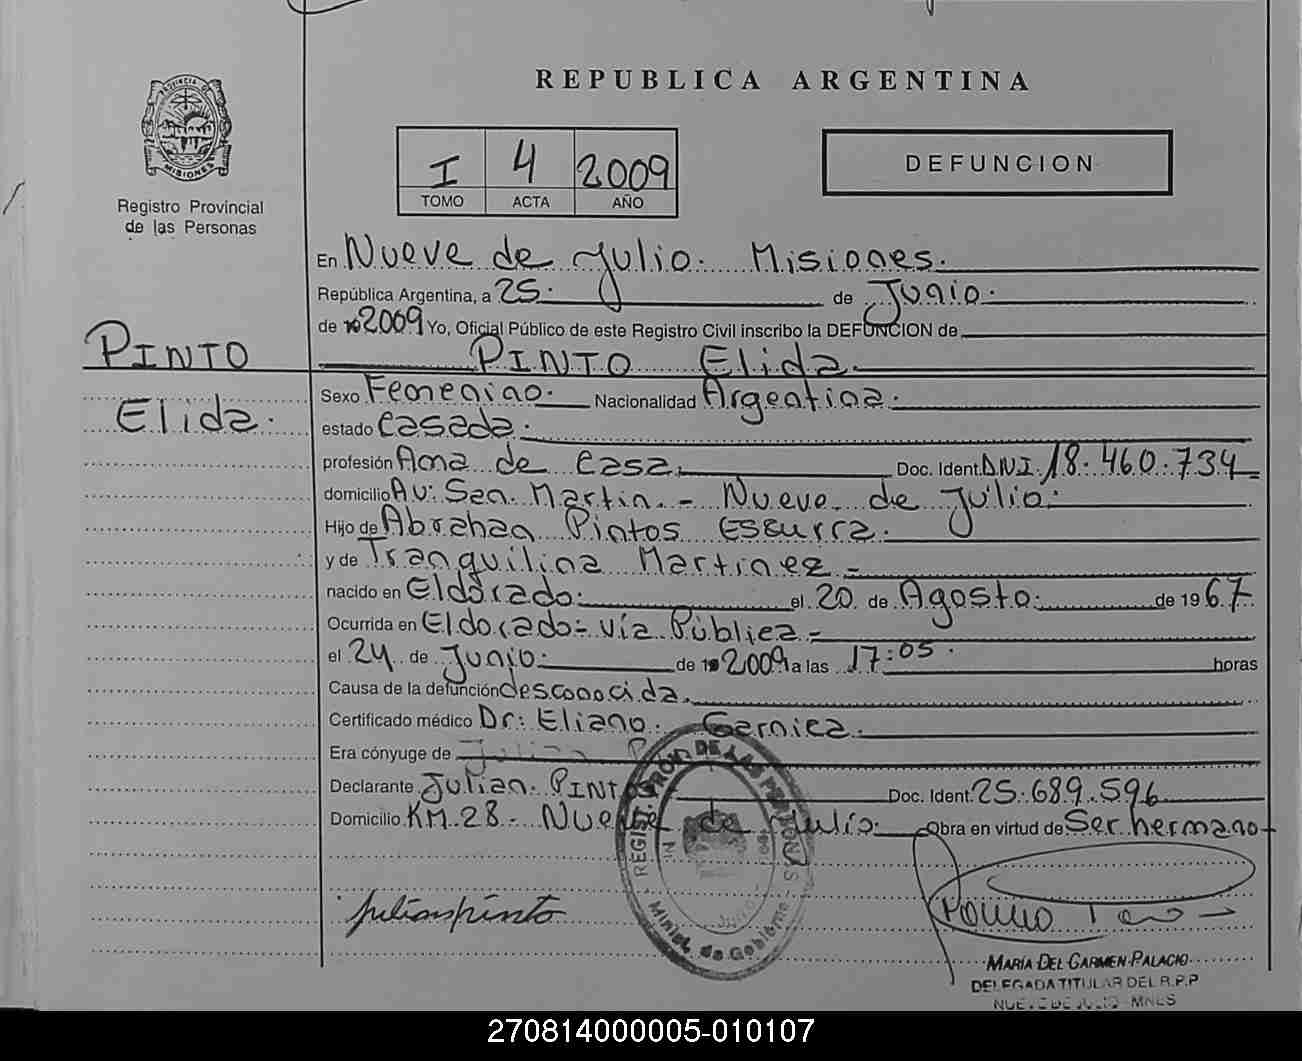 REPUBLICA ARGENTINA
PROVINCIA DE MISIONES
Registro Provincial
de las Personas
I 4 2009
TOMO ACTA AÑO
DEFUNCION
En Nueve de Julio. Misiones.
República Argentina, a 25. de Junio.
de 2009 Yo, Oficial Público de este Registro Civil inscribo la DEFUNCION de
PINTO Elida.
PINTO
Elida.
Sexo Femenino. Nacionalidad Argentina.
estado Casada.
profesión Ama de Casa. Doc. Ident. DNI. 18.460.734
domicilio Av: San Martin - Nueve de Julio.
Hijo de Abrahan Pintos Escurra.
y de Tranquilina Martinez -
nacido en Eldorado. el 20 de Agosto. de 1967
Ocurrida en Eldorado - Vía Pública -
el 24 de Junio. de 2009 a las 17:05. horas
Causa de la defunción desconocida.
Certificado médico Dr: Eliano. Garnica.
Era cónyuge de
Declarante Julian PINTO Doc. Ident. 25.689.596
Domicilio KM 28 - Nueve de Julio. Obra en virtud de Ser hermano
julian pinto
REGIST. PROV. DE LAS PERSONAS
Minist. de Gobierno
MARÍA DEL CARMEN PALACIO
DELEGADA TITULAR DEL R.P.P
NUEVE DE JULIO - MNES
270814000005-010107